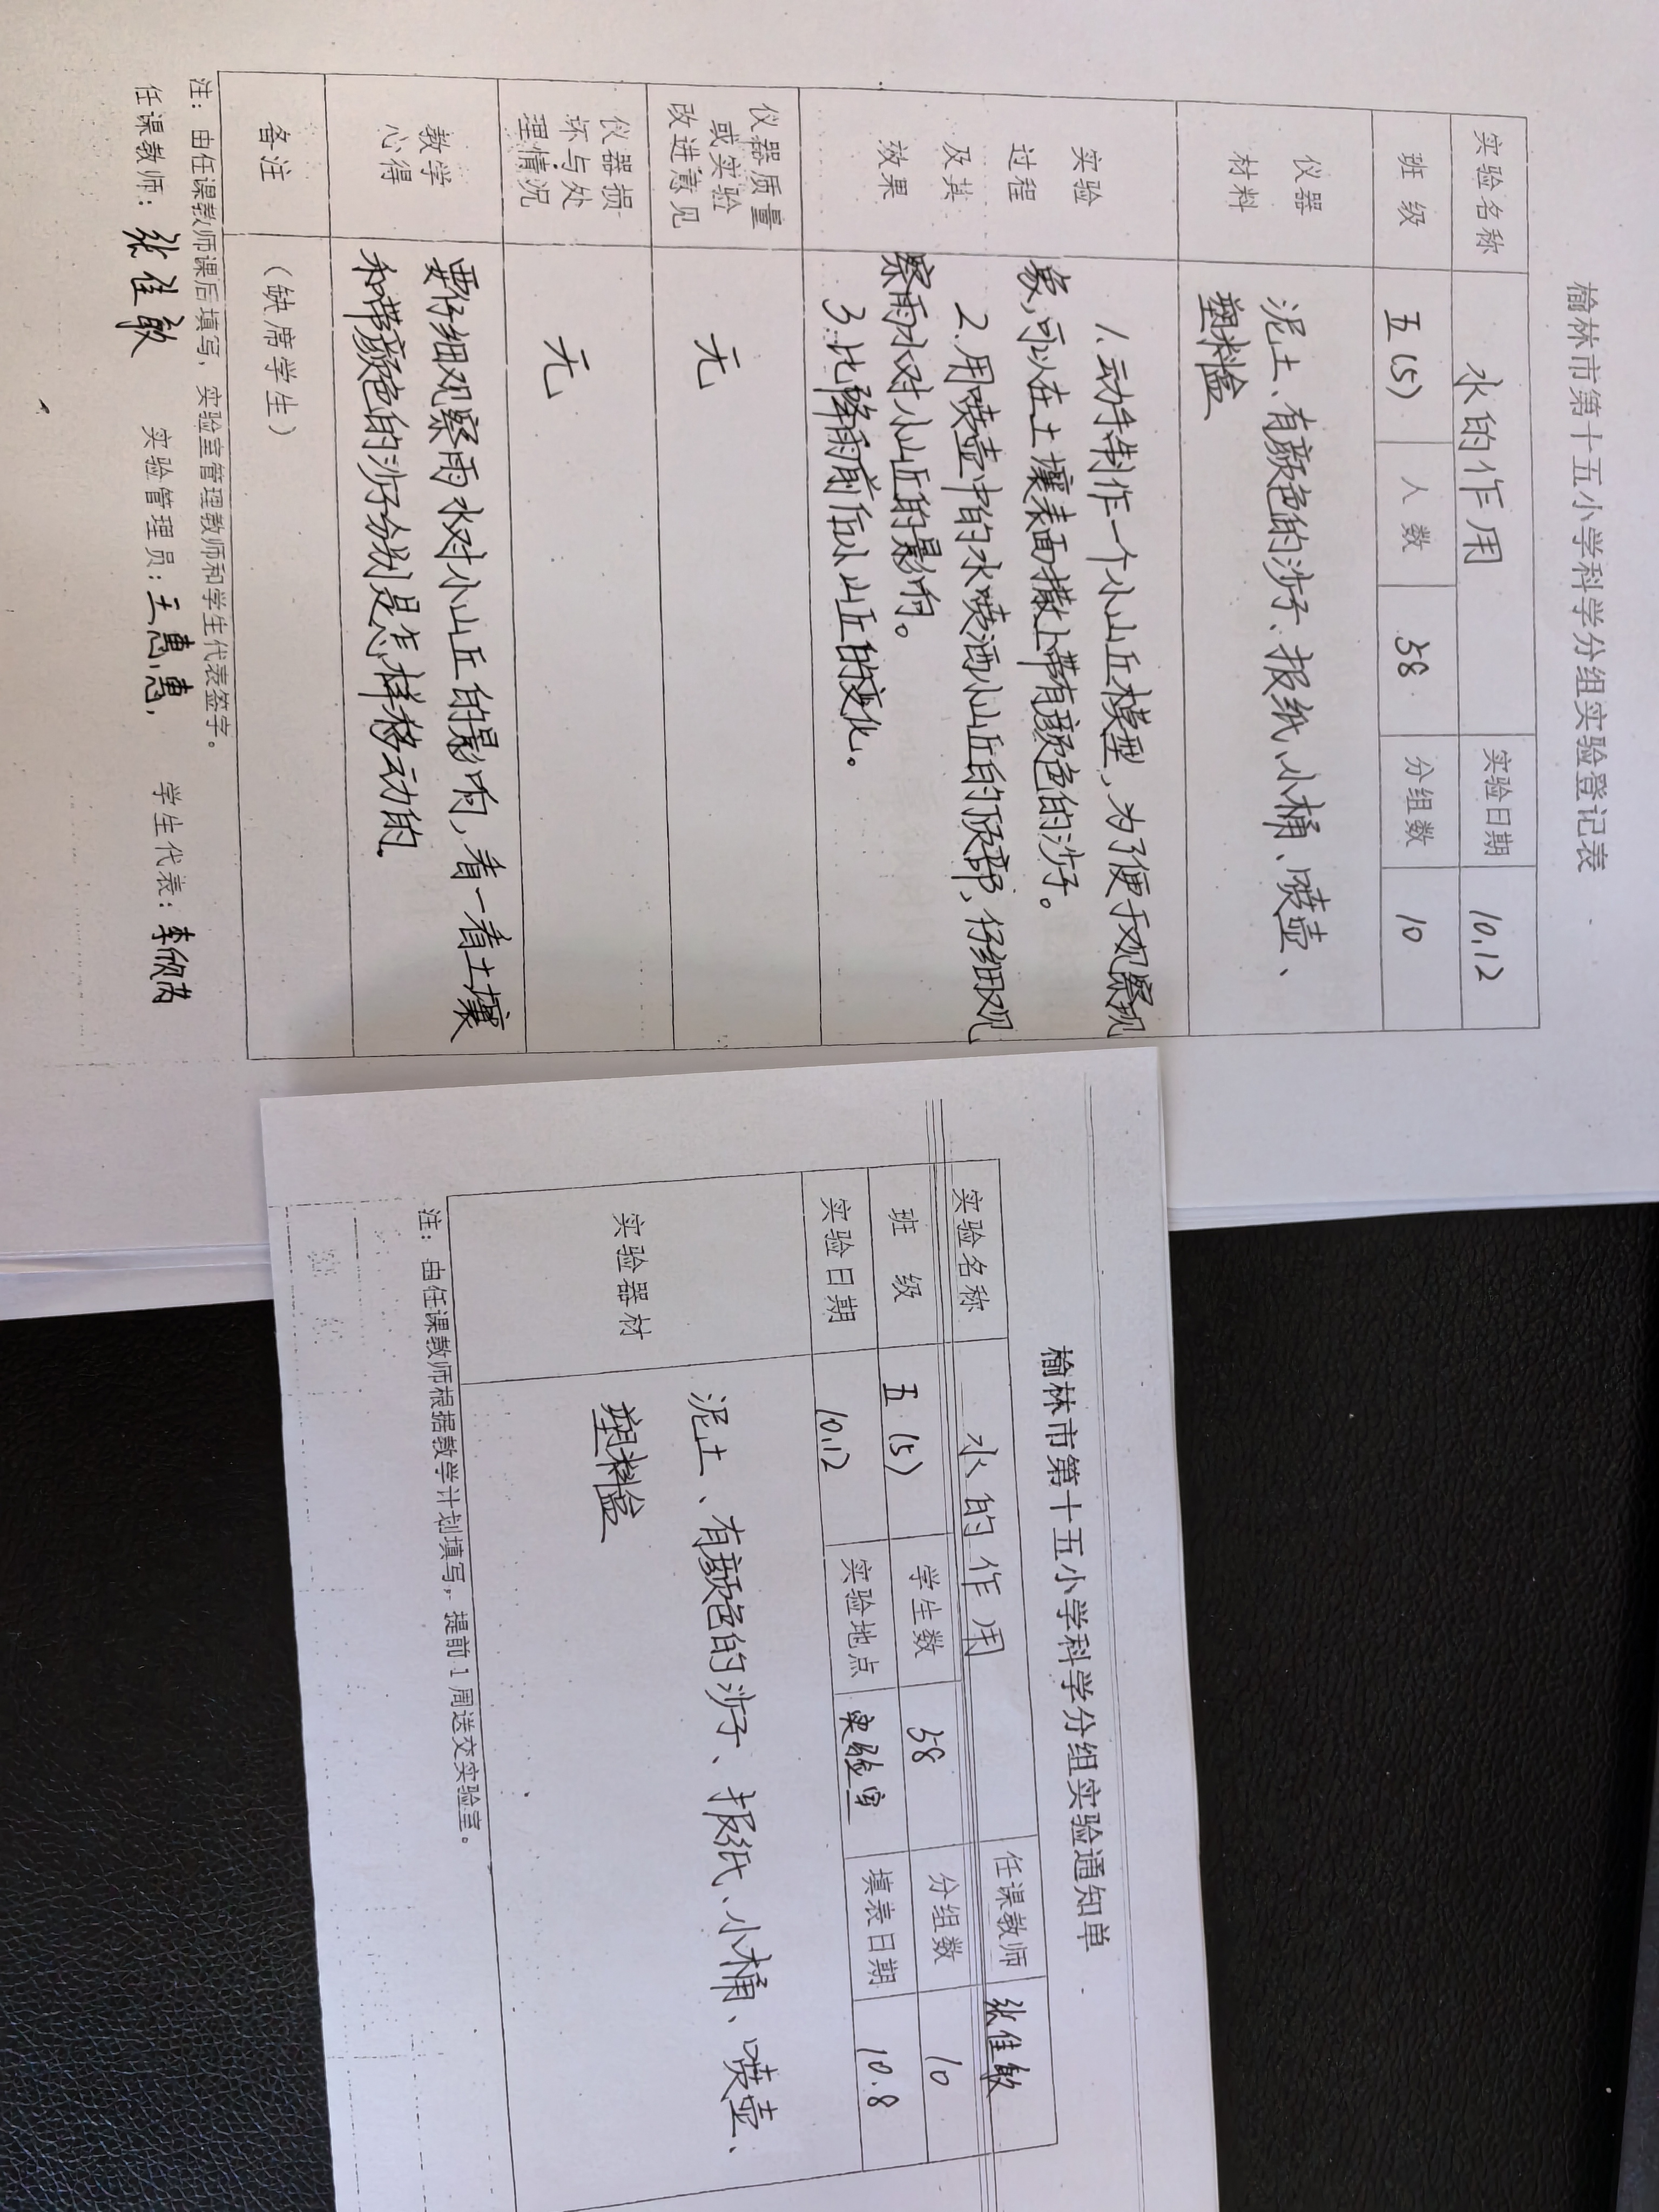 榆林市第十五小学科学分组实验登记表
实验名称 水的作用 实验日期 10.12
班 级 五(5) 人 数 58 分组数 10
仪器
材料
泥土、有颜色的沙子、报纸、小桶、喷壶、
塑料盒
实验
过程
及其
效果
1.动手制作一个小山丘模型,为了便于观察现
象,可以在土壤表面撒上带有颜色的沙子。
2.用喷壶中的水喷洒小山丘的顶部,仔细观
察雨水对小山丘的影响。
3.比降雨前后小山丘的变化。
仪器质量
或实验
改进意见
无
仪器损
坏与处
理情况
无
教学
心得
要仔细观察雨水对小山丘的影响,看一看土壤
和带颜色的沙子分别是怎样移动的.
备注 (缺席学生)
注:由任课教师课后填写,实验室管理教师和学生代表签字。
任课教师:张佳敏 实验管理员:王惠惠, 学生代表:李欣
榆林市第十五小学科学分组实验通知单
实验名称 水的作用 任课教师 张佳敏
班 级 五(5) 学生数 58 分组数 10
实验日期 10.12 实验地点 实验室 填表日期 10.8
实验器材
泥土、有颜色的沙子、报纸、小桶、喷壶、
塑料盒
注:由任课教师根据教学计划填写,提前1周送交实验室。